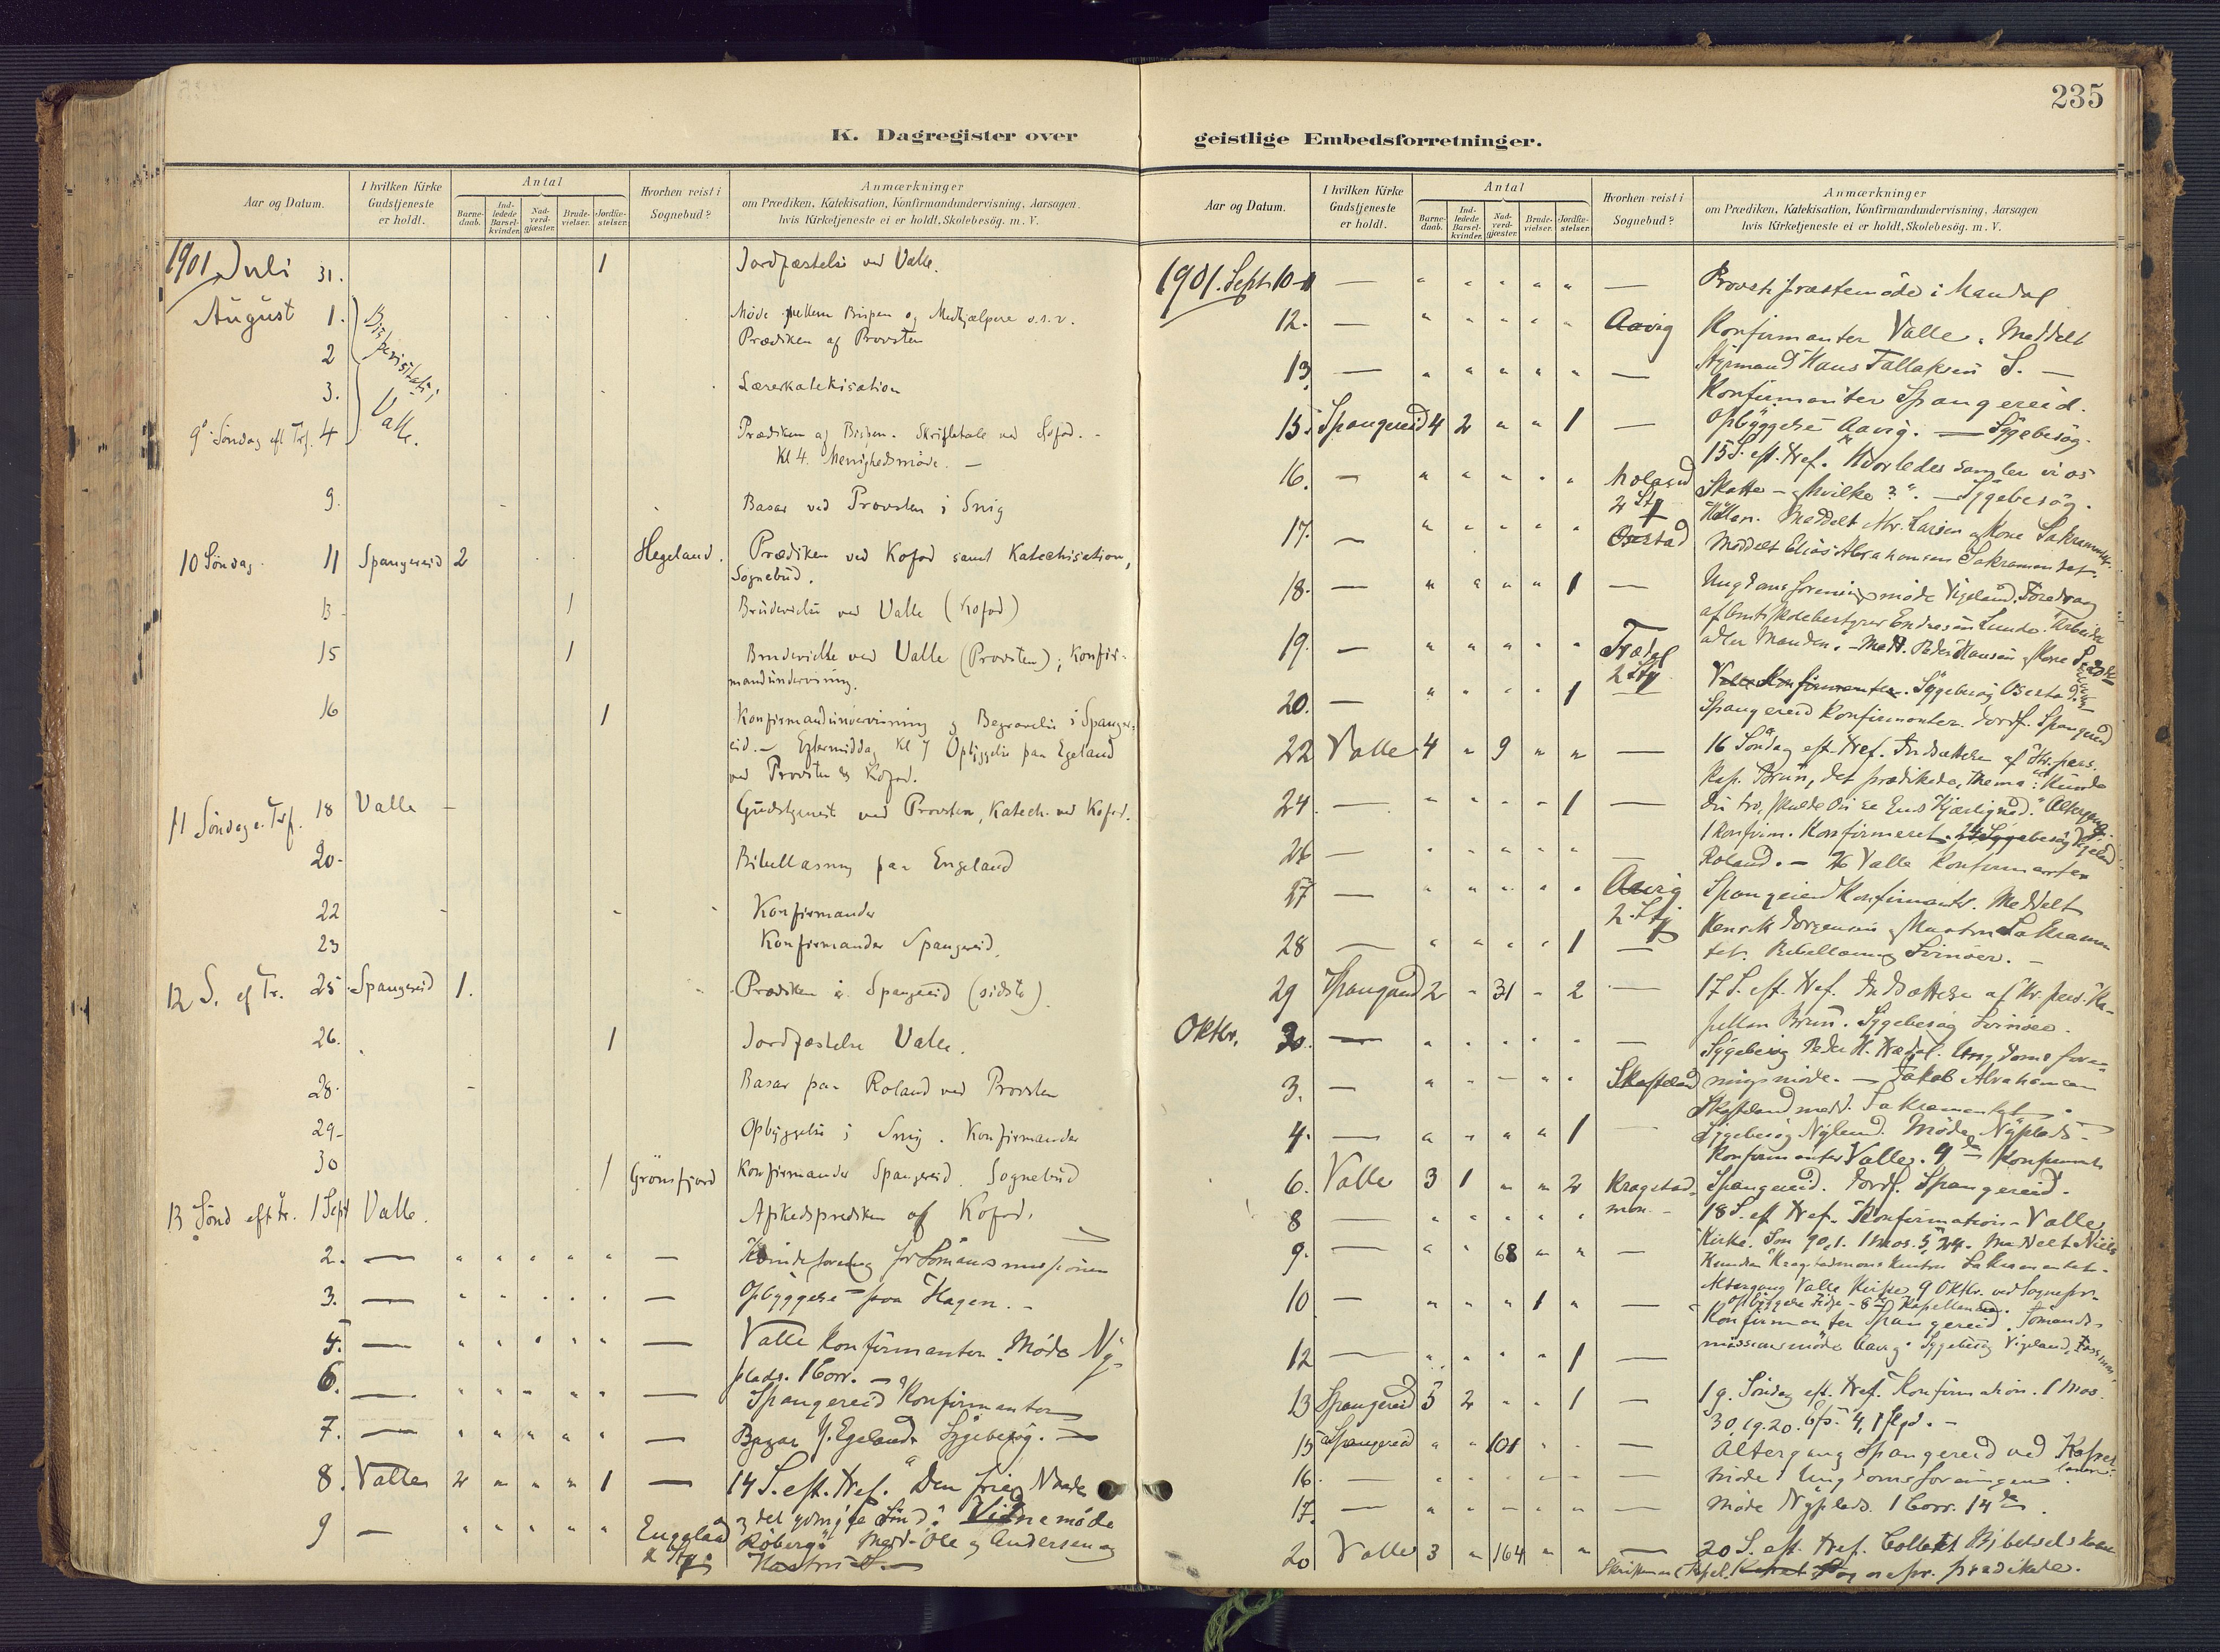 235
K. Dagregister over
geistlige Embedsforretninger.
Aar og Datum.
I hvilken Kirke Gudstjeneste er holdt.
Antal
Barne-daab.
Ind-ledede Barsel-kvinder.
Nad-verd-gjæster.
Brude-vielser.
Jordfæ-stelser.
Hvorhen reist i Sognebud?
Anmærkninger
om Prædiken, Katekisation, Konfirmandundervisning, Aarsagen,
hvis Kirketjeneste ei er holdt, Skolebesög. m. V.
1901 Juli 31. 1 Jordfæstelse ved Valle.
August 1. Bispevisitats i Valle. Møde mellem Bispen og Medhjælpere o.s.v.
2 Prædiken af Provsten
3. Lærerkatekisation
9de Søndag eft Trf. 4 Prædiken af Bispen. Skriftetale ved Kofod. -
Kl 4. Menighedsmøde. -
9. Basar ved Provsten i Snig
10 Søndag 11 Spangereid 2 Hegeland. Prædiken ved Kofod samt Katechisation,
Sognebud.
13 - 1 Brudevielse ved Valle (Kofod)
15 1 Brudevielse ved Valle (Provsten); Konfir-
mandundervisning.
16 1 Konfirmandundervisning og Begravelse i Spanger-
eid. - Eftermiddag Kl 7 Opbyggelse paa Egeland
ved Provsten & Kofod.
11 Søndag e. Trf. 18 Valle - Gudstjenest ved Provsten, Katech. ved Kofod.
20 - Bibellæsning paa Engeland
22 Konfirmander
23 Konfirmander Spangereid.
12 S. ef Tr. 25 Spangereid 1. Prædiken i Spangereid (sidste).
26. 1 Jordfæstelse Valle.
28. Basar paa Roland ved Provsten
29 - Opbyggelse i Snig. Konfirmander
30 1 Grönsfjord Konfirmander Spangereid. Sognebud
13 Sønd eft Tr. 1 Sept Valle. Afskedsprediken af Kofod.
2. — " " " " " — Kvindeforening for Sömandsmissionen
3. — " " " " " — Opbyggelse paa Hagen. -
5. — " " " " " — Valle Konfirmanter. Møde Ny-
plads. 1 Corr. -
6. — " " " " " — Spangereid Konfirmanter
7. — " " " " " — Bazar Y. Egeland. Sygebesög. —
8. Valle 2 " " " 1 — 14 S. eft. Tref. "Den frie Naade
og det ydmyge Sind". Vidnemöde
9 — " " " " " Engeland 2 Stk Röberg. Medd. Ole Andersen og
Hustru S. —
Aar og Datum.
I hvilken Kirke Gudstjeneste er holdt.
Antal
Barne-daab.
Ind-ledede Barsel-kvinder.
Nad-verd-gjæster.
Brude-vielser.
Jordfæ-stelser.
Hvorhen reist i Sognebud?
Anmærkninger
om Prædiken, Katekisation, Konfirmandundervisning, Aarsagen
hvis Kirketjeneste ei er holdt, Skolebesög. m. V.
1901. Septr 10-11 — " " " " " — Provstipræstemöde i Mandal
12. — " " " " " Aavig Konfirmanter Valle. Meddelt
Styrmand Hans Tallaksen S. —
13. — " " " " " — Konfirmanter Spangereid.
Opbyggelse Aavig. — Sygebesög.
15. Spangereid 4 2 " " 1 — 15 S. eft. Tref. "Hvorledes samler vi os
Skatte - og hvilke?". — Sygebesög.
16. — " " " " " Moland 2 Stk
Meddelt Larsen og Kone Sakramentet.
17. — " " " " " Osestad Meddelt Elias Abrahamsen Sakramentet.
18. — " " " " 1 — Ungdomsforeningsmöde Vigeland. Foredrag
af Amtskolebestyrer Endresen Lunde. "Arbeidet
adler Manden". - Medd. Peder Hansen og Kone
19. — " " " " " Trædal 2 Stk
Valle Konfirmanter. Sygebesög Osestad.
20. — " " " " 1 — Spangereid Konfirmanter. Jordf. Spangereid
22 Valle 4 " 9 " " — 16 Söndag eft. Tref. Indsættelse af Kr. pers.
Kap. Brun, der prædikede, Thema: Kunde
du tro, skulde du se Guds Kjærlighed. Altergang
24 — " " " " 1 — 1 Konfirm. Konfirmeret. 24 Sygebesög
26 — " " " " " — Roland. - 26 Valle Konfirmanter
27 — " " " " " Aavig 2 Stk Spangereid Konfirmanter. Meddelt
Henrik Jörgensen og Hustru Sakramen
28 — " " " " 1 — tet. Bibellæsning Svinöer. -
29 Spangereid 2 " 31 " 2 — 17 S. eft. Tref. Indsættelse af Kr. pers. Ka-
pellan Brun. Sygebesög Svinöer.
Oktbr. — " " " " " — Sygebesög Peder H. Trædal. Ungdomsfore-
3. — " " " " " Skofteland ningsmöde. — Jakob Abrahamsen
Skofteland medd. Sakramentet.
4. — " " " " 1 — Sygebesög Nyland. Möde Nyplads -
Konfirmanter Valle.
6. Valle 3 1 " " 2 Kragstad-mon. - Spangereid. Jordf. Spangereid.
8 — " " " " " 18 S. eft Tref. Konfirmation - Valle
Kirke. 1 Mos. 5, 24. Meddelt Niels
9. — " " 68 " " — Knudsen Kragstadmons Hustru Sakramentet.
Altergang Valle Kirke 9 Oktbr. ved Sognepr.
10 — " " " 1 " — Konfirmanter Spangereid. Sömands-
missionsmöde Aavig. Sygebesög Vigeland,
12 — " " " " 1 —
13 Spangereid 5 2 " " 1 — 19. Söndag eft. Tref. Konfirmation. 1 Mos.
30, 19. 20. Ef. 4, 1 flgd. -
15 Spangereid " " 101 " " — Altergang Spangereid ved Kapel
lanen.
16. — " " " " " — Möde Ungdomsforeningen
17. — " " " " " — Möde Nyplads. 1 Corr. 14de.
20 Valle 3 " 164 " " — 20 S. eft. Tref. Collekt Bibelselskabet
Skriftem. Kapel. Sognepr. prædikede.